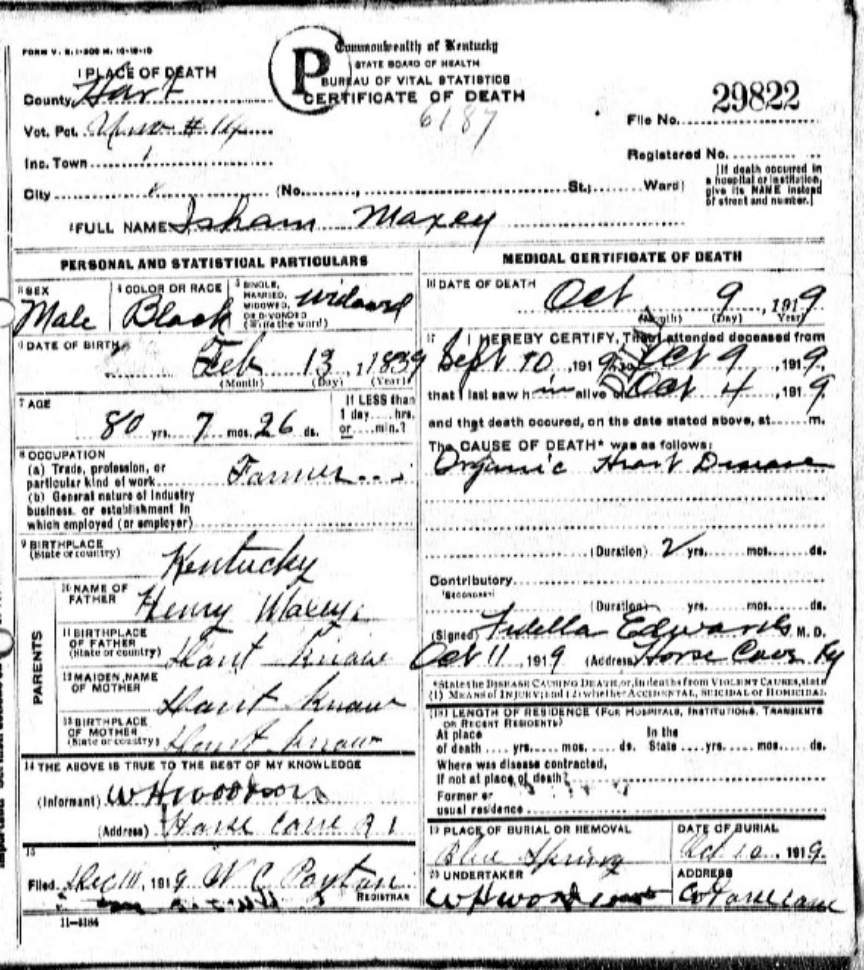 FORM V. S. 1-300 M. 10-18-19
Commonwealth of Kentucky
STATE BOARD OF HEALTH
BUREAU OF VITAL STATISTICS
CERTIFICATE OF DEATH
P
6187
29822
1 PLACE OF DEATH
County Hart
Vot. Pct.
Inc. Town
City (No. St.; Ward)
File No.
Registered No.
[If death occurred in a hospital or institution, give its NAME instead of street and number.]
2 FULL NAME Isham Maxey
PERSONAL AND STATISTICAL PARTICULARS
3 SEX
Male
4 COLOR OR RACE
Black
5 SINGLE, MARRIED, WIDOWED, OR DIVORCED (Write the word)
6 DATE OF BIRTH
Feb 13, 1839
(Month) (Day) (Year)
7 AGE
80 yrs. 7 mos. 26 ds.
If LESS than 1 day.... hrs. or.... min.?
8 OCCUPATION
(a) Trade, profession, or particular kind of work Farmer
(b) General nature of Industry business, or establishment in which employed (or employer)
9 BIRTHPLACE
(State or country)
Kentucky
PARENTS
10 NAME OF FATHER
Henry Maxey
11 BIRTHPLACE OF FATHER (State or country)
Dont Know
12 MAIDEN NAME OF MOTHER
Dont Know
13 BIRTHPLACE OF MOTHER (State or country)
Dont Know
14 THE ABOVE IS TRUE TO THE BEST OF MY KNOWLEDGE
(Informant) W H Woodson
(Address) Horse Cave R 1
15
Filed 1919 W C Paytan
REGISTRAR
11-4184
MEDICAL CERTIFICATE OF DEATH
16 DATE OF DEATH
Oct 9, 1919
(Month) (Day) (Year)
17 I HEREBY CERTIFY, That I attended deceased from
Sept 10, 1919, to Oct 9, 1919,
that I last saw him alive on Oct 4, 1919
and that death occured, on the date stated above, at m.
The CAUSE OF DEATH* was as follows:
Organic Heart Disease
(Duration) 2 yrs. mos. ds.
Contributory
(SECONDARY)
(Duration) yrs. mos. ds.
(Signed) Edwards M. D.
Oct 11, 1919 (Address) Horse Cave Ky
*State the DISEASE CAUSING DEATH, or, in deaths from VIOLENT CAUSES, state (1) MEANS of INJURY; and (2) whether ACCIDENTAL, SUICIDAL or HOMICIDAL
18 LENGTH OF RESIDENCE (FOR HOSPITALS, INSTITUTIONS, TRANSIENTS OR RECENT RESIDENTS)
At place of death yrs. mos. ds. In the State yrs. mos. ds.
Where was disease contracted,
If not at place of death?
Former or usual residence
19 PLACE OF BURIAL OR REMOVAL
Blue Spring
DATE OF BURIAL
Oct 10, 1919
20 UNDERTAKER
W H Woodson
ADDRESS